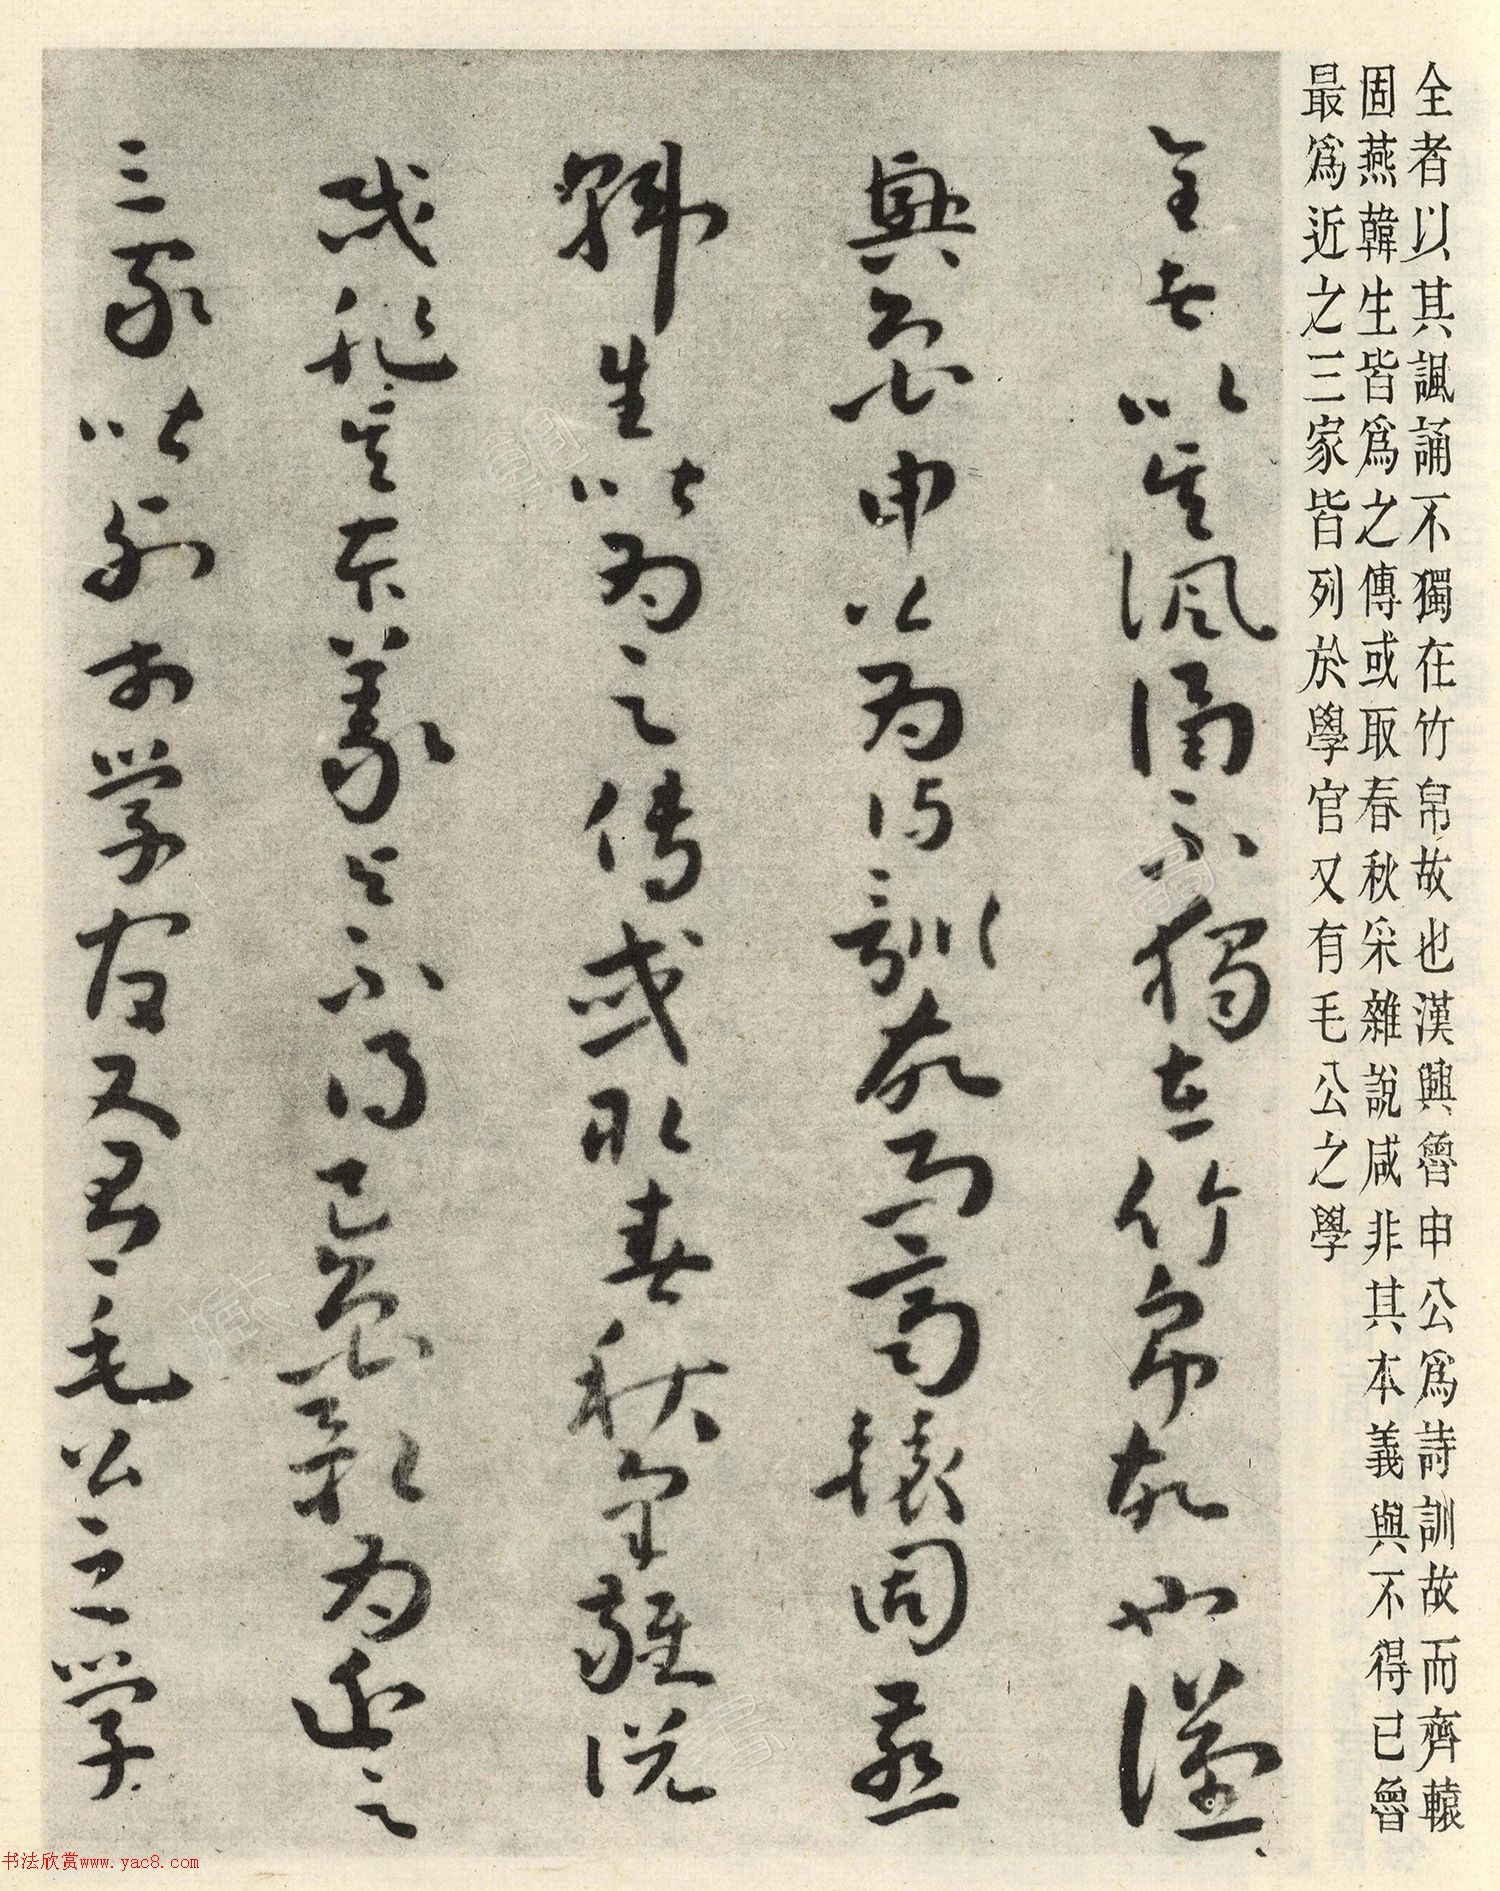 全者以其諷誦不獨在竹帛故也漢興魯申公爲詩訓故而齊轅
固燕韓生皆爲之傳或取春秋采雜說咸非其本義與不得已魯
最爲近之三家皆列於學官又有毛公之學
全者以其諷誦不獨在竹帛故也漢
興魯申公爲詩訓故而齊轅固燕
韓生皆爲之傳或取春秋采雜說
咸非其本義與不得已魯最爲近之
三家皆列於學官又有毛公之學
书法欣赏www.yac8.com